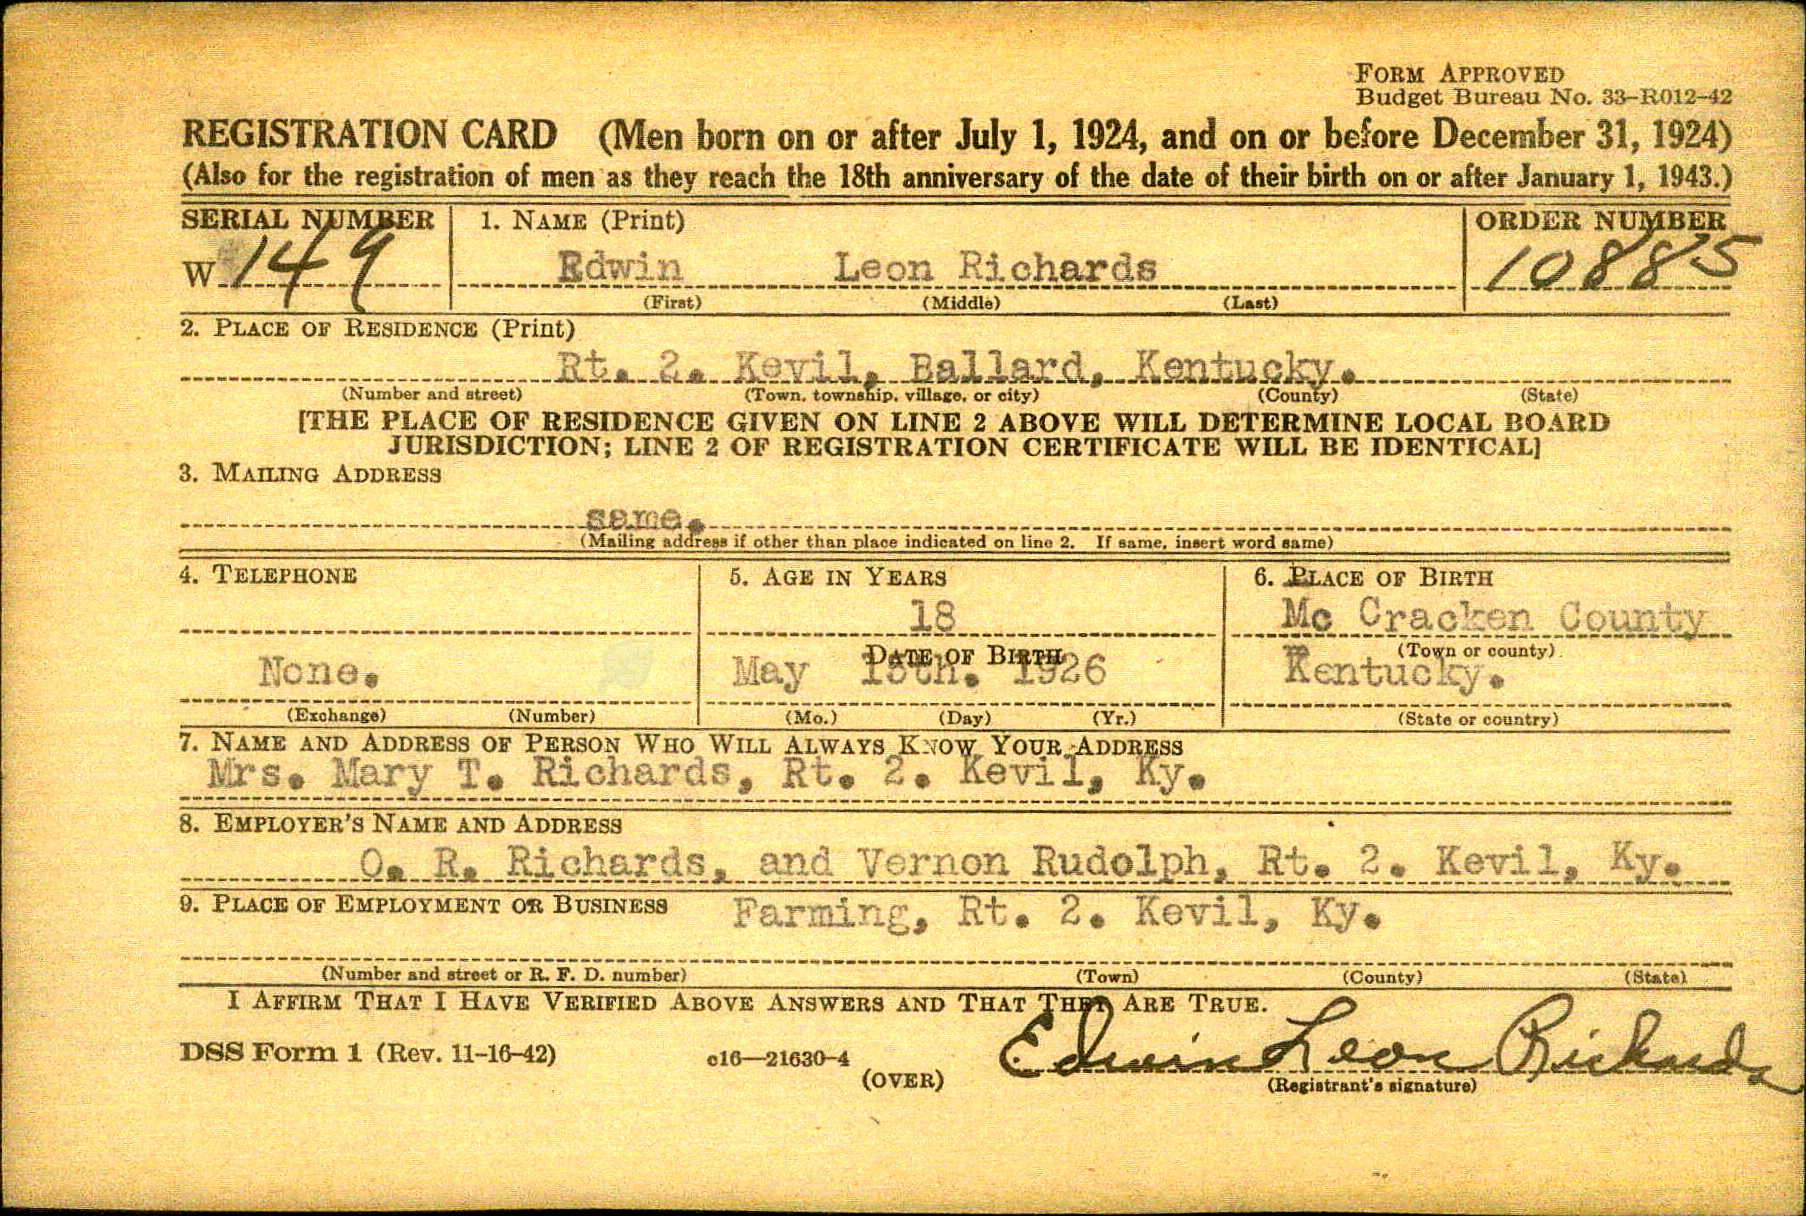 FORM APPROVED
Budget Bureau No. 33-R012-42
REGISTRATION CARD (Men born on or after July 1, 1924, and on or before December 31, 1924)
(Also for the registration of men as they reach the 18th anniversary of the date of their birth on or after January 1, 1943.)
SERIAL NUMBER 1. NAME (Print) ORDER NUMBER
W 149 Edwin Leon Richards 10885
(First) (Middle) (Last)
2. PLACE OF RESIDENCE (Print)
Rt. 2. Kevil, Ballard, Kentucky.
(Number and street) (Town, township, village, or city) (County) (State)
[THE PLACE OF RESIDENCE GIVEN ON LINE 2 ABOVE WILL DETERMINE LOCAL BOARD
JURISDICTION; LINE 2 OF REGISTRATION CERTIFICATE WILL BE IDENTICAL]
3. MAILING ADDRESS
same.
(Mailing address if other than place indicated on line 2. If same, insert word same)
4. TELEPHONE 5. AGE IN YEARS 6. PLACE OF BIRTH
18 Mc Cracken County
DATE OF BIRTH (Town or county)
None. May 1926 Kentucky.
(Exchange) (Number) (Mo.) (Day) (Yr.) (State or country)
7. NAME AND ADDRESS OF PERSON WHO WILL ALWAYS KNOW YOUR ADDRESS
Mrs. Mary T. Richards, Rt. 2. Kevil, Ky.
8. EMPLOYER'S NAME AND ADDRESS
O. R. Richards, and Vernon Rudolph, Rt. 2. Kevil, Ky.
9. PLACE OF EMPLOYMENT OR BUSINESS Farming, Rt. 2. Kevil, Ky.
(Number and street or R. F. D. number) (Town) (County) (State)
I AFFIRM THAT I HAVE VERIFIED ABOVE ANSWERS AND THAT THEY ARE TRUE.
DSS Form 1 (Rev. 11-16-42) c16—21630-4 Edwin Leon Richards
(OVER) (Registrant's signature)